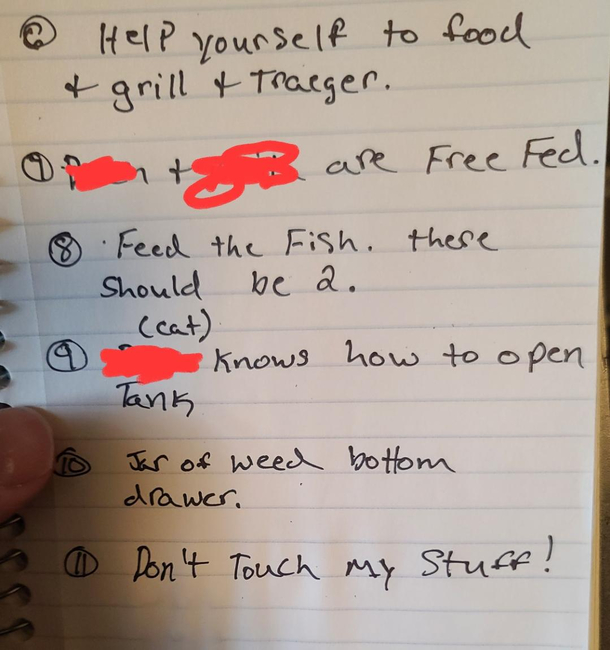 ⑥ Help yourself to food
+ grill + Traeger.
⑦ + are Free Fed.
⑧ Feed the Fish. there
should be 2.
(cat)
⑨ Knows how to open
Tank
⑩ Jar of weed bottom
drawer.
⑪ Don't Touch My Stuff!